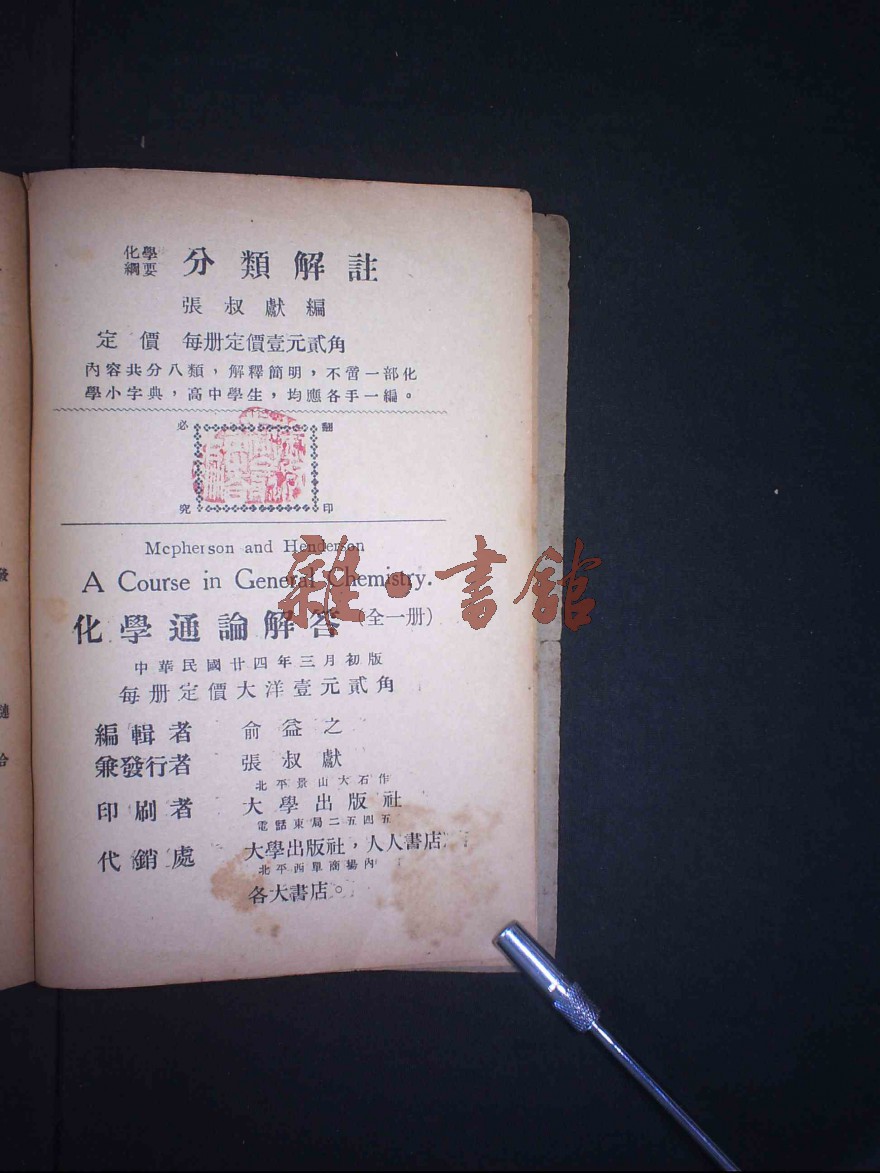 化學綱要 分類解註
張叔獻編
定價 每册定價壹元貳角
內容共分八類，解釋簡明，不啻一部化
學小字典，高中學生，均應各手一編。
翻印必究
Mcpherson and Henderson
A Course in General Chemistry.
化學通論解答（全一册）
中華民國廿四年三月初版
每册定價大洋壹元貳角
編輯者 俞益之
兼發行者 張叔獻
北平景山大石作
印刷者 大學出版社
電話東局二五四五
代銷處 大學出版社，人人書店
北平西單商場內
各大書店。
雜·書館